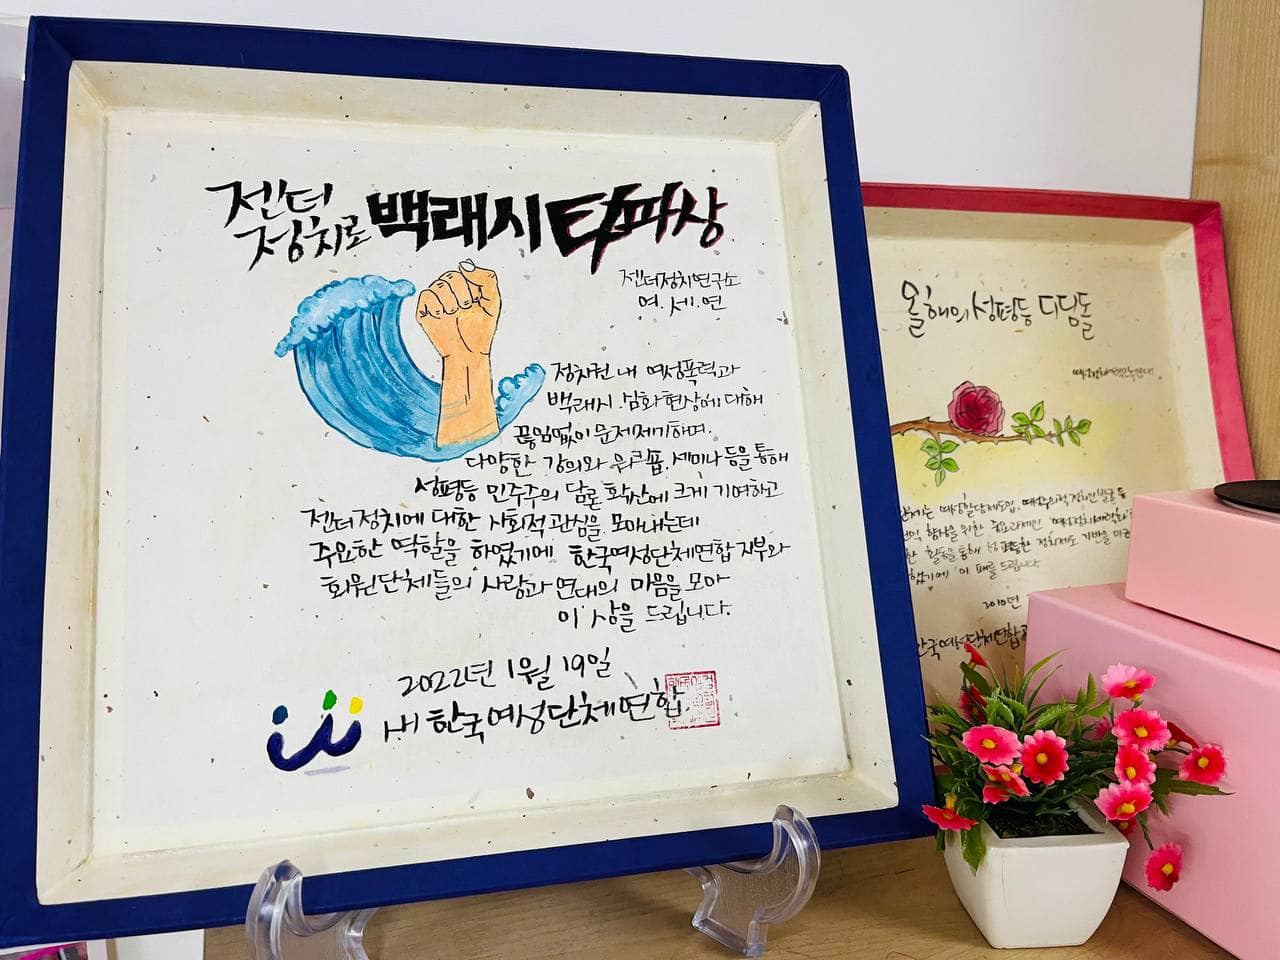 젠더
정치로 백래시 타파상
젠더정치연구소
여.세.연
정치권 내 여성폭력과
백래시 심화현상에 대해
끊임없이 문제제기하며,
다양한 강의와 워크숍, 세미나 등을 통해
성평등 민주주의 담론 확산에 크게 기여하고
젠더정치에 대한 사회적 관심을 모아내는데
주요한 역할을 하였기에 한국여성단체연합 지부와
회원단체들의 사랑과 연대의 마음을 모아
이 상을 드립니다.
2022년 1월 19일
한국여성단체연합
올해의 성평등 디딤돌
여성할당제도입, 여성주의적 정치인 발굴 등
향상을 위한 주요과제인 '여성정치세력화'
활동을 통해 성평등한 정치제도 기반을
했기에 이 패를 드립니다
2010년
한국여성단체연합